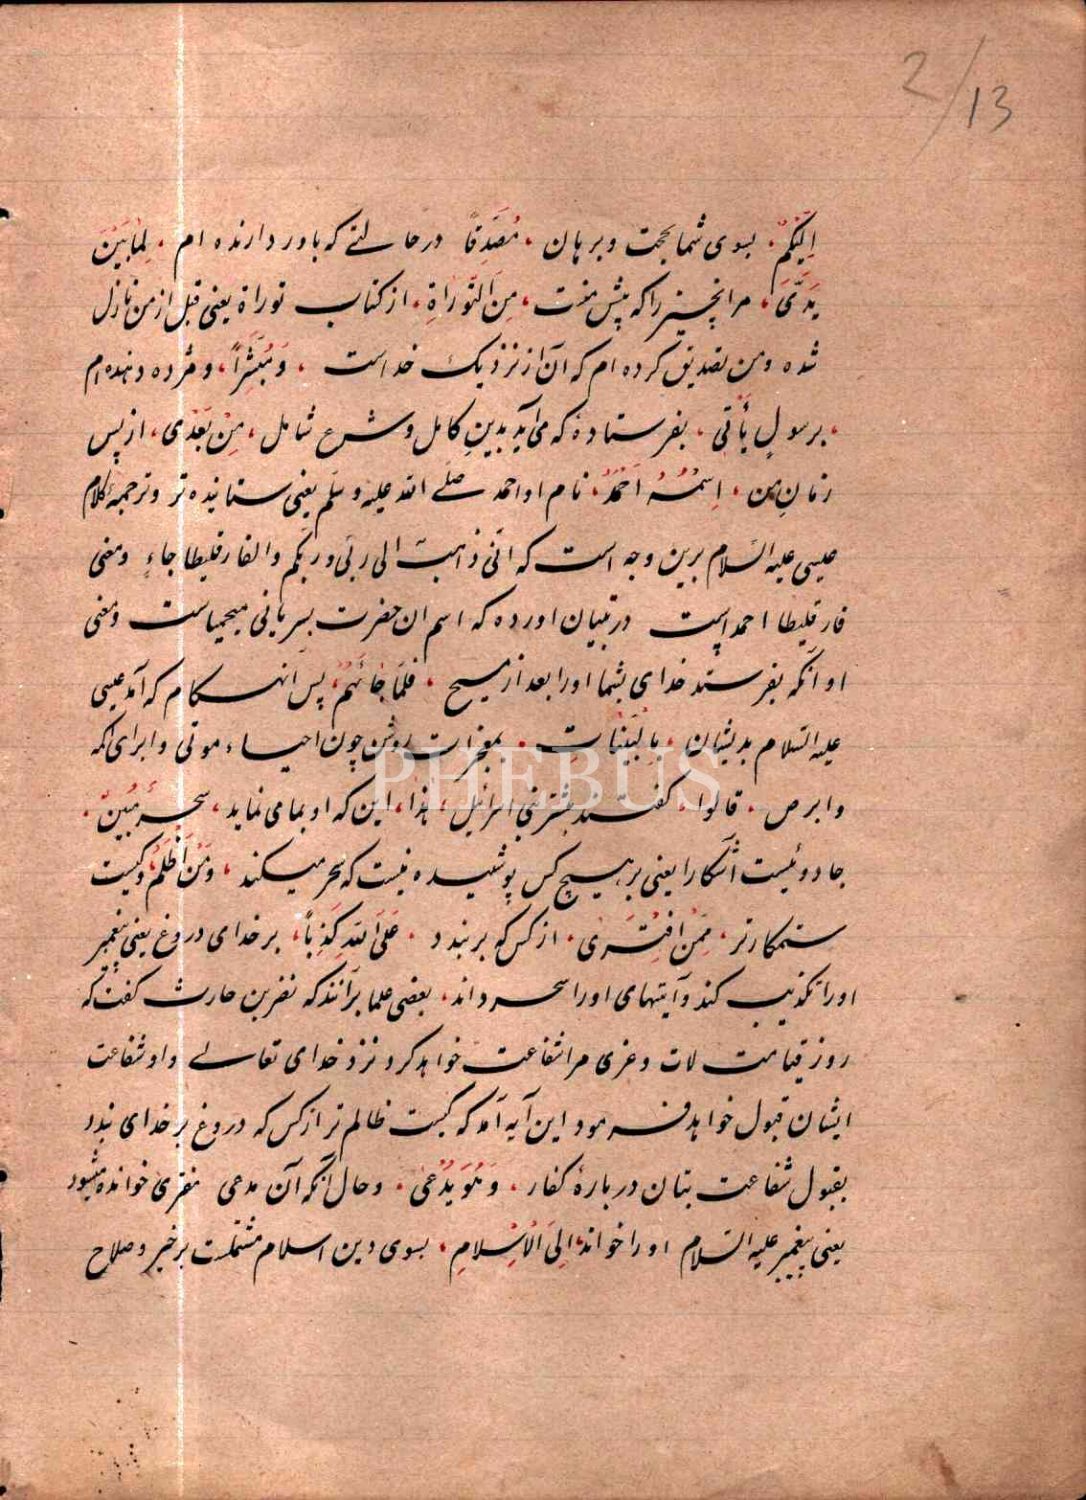 2/13
اِلَیْکُمْ بسوی شما بحجت و برهان مُصَدِّقاً در حالتی که باور دارنده ام لِمٰا بَیْنَ
یَدَیَّ مر انچیز را که پیش منت مِنَ التَّوْرٰاةِ از کتاب توراة یعنی قبل از من نازل
شده و من تصدیق کرده ام که آن از نزدیک خداست وَ مُبَشِّراً و مژده دهنده ام
برسولٍ یَأْتی بفرستادهٔ که می آید بدین کامل و شرع شامل مِنْ بَعْدی از پس
زمانِ من اِسْمُهُ اَحْمَدُ نام او احمد صلے الله علیه وسلم یعنی ستاینده تر و ترجمهٔ کلام
عیسی علیه السلام برین وجه است که انّی ذاهبٌ الی ربّی و ربّکم والفارقلیطا جاءٍ و معنی
فارقلیطا احمد است در تبیان اورده که اسم ان حضرت بسریانی میحیاست و معنی
او آنکه بفرستد خدای بشما او را بعد از مسیح فَلَمّٰا جٰائَهُمْ پس آنهنکام که آمد عیسی
علیه السلام بدیشان بِالْبَیِّنٰاتِ بمعجزات روشن چون احیاء موتی و ابرای اکمه
و ابرص قالوا کفتند بنی اسرائیل هٰذٰا این که او بما می نماید سِحْرٌ مُبینٌ
جادوئیست آشکارا یعنی بر هیچ کس پوشیده نیست که سحر میکند وَ مَنْ اَظْلَمُ و کیست
ستمکارتر مِمَّنِ افْتَرٰی از کس که بربندد عَلَی اللهِ کَذِباً بر خدای دروغ یعنی پیغمبر
اورا تکذیب کند و آیتهای او را سحر داند بعضی علما برآنند که نضر بن حارث کفت که
روز قیامت لات و عزی مرا شفاعت خواهد کرد نزد خدای تعالے و او شفاعت
ایشان قبول خواهد فرمود این آیه آمد که کیست ظالم تر از کس که دروغ بر خدای بندد
بقبول شفاعت بتان در بارهٔ کفار وَ هُوَ یُدْعٰی و حال آنکه آن مدعی مفتری خوانده میشود
یعنی پیغمبر علیه السلام او را خواند اِلَی الْاِسْلٰامِ بسوی دین اسلام مشتملست بر خیر و صلاح
PHEBUS